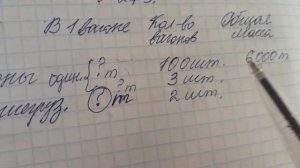 В 1 вагоне Кол-во вагонов Общая масса
ны один. { ? 100 шт. 6000 т
? т 3 шт.
груз. ? т 2 шт.